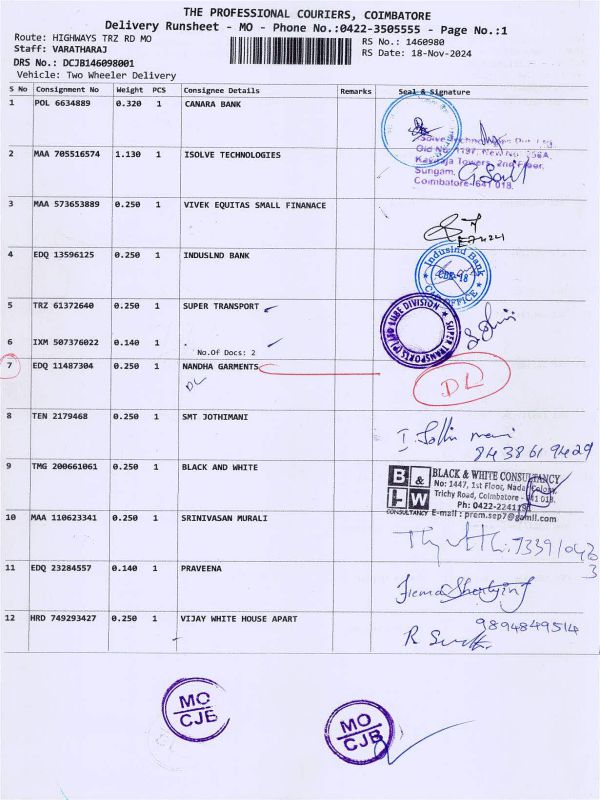 THE PROFESSIONAL COURIERS, COIMBATORE
Delivery Runsheet - MO - Phone No.:0422-3505555 - Page No.:1
Route: HIGHWAYS TRZ RD MO
RS No.: 1460980
Staff: VARATHARAJ
RS Date: 18-Nov-2024
DRS No.: DCJB146098001
Vehicle: Two Wheeler Delivery
S No Consignment No Weight PCS Consignee Details Remarks Seal & Signature
1 POL 6634889 0.320 1 CANARA BANK
Old No. 1197, New No.
2 MAA 705516574 1.130 1 ISOLVE TECHNOLOGIES
Kaviraja Towers, 2nd Floor,
Sungam,
Coimbatore-641 018.
3 MAA 573653889 0.250 1 VIVEK EQUITAS SMALL FINANACE
E7424
4 EDQ 13596125 0.250 1 INDUSLND BANK
IndusInd Bank
CBE-18
OFFICE
5 TRZ 61372640 0.250 1 SUPER TRANSPORT
SUPER TRANSPORTS (P) LTD LUBE DIVISION
6 IXM 507376022 0.140 1
No.Of Docs: 2
7 EDQ 11487304 0.250 1 NANDHA GARMENTS
DL
DL
8 TEN 2179468 0.250 1 SMT JOTHIMANI
8438619429
9 TMG 200661061 0.250 1 BLACK AND WHITE
B & W
CONSULTANCY
BLACK & WHITE CONSULTANCY
No: 1447, 1st Floor, Nadar Colony,
Trichy Road, Coimbatore - 641 018.
Ph: 0422-2241194
E-mail : prem.sep7@gmail.com
10 MAA 110623341 0.250 1 SRINIVASAN MURALI
11 EDQ 23284557 0.140 1 PRAVEENA
12 HRD 749293427 0.250 1 VIJAY WHITE HOUSE APART
9894849514
MO
CJB
MO
CJB